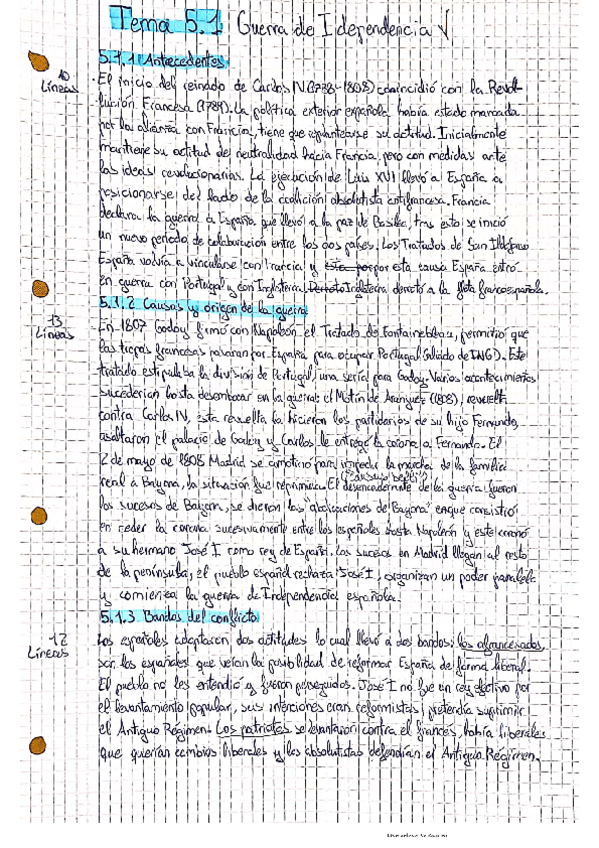 Tema 5.1 Guerra de Idependencia
5.1.1 Antecedentes
10
Líneas
El inicio del reinado de Carlos IV (1788-1808) coincidió con la Revol-
lución Francesa (1789). La política exterior española había estado marcada
por la alianza con Francia, tiene que replantearse su actitud. Inicialmente
mantiene su actitud de neutralidad hacia Francia, pero con medidas ante
las ideas revolucionarias. La ejecución de Luis XVI llevó a España a
posicionarse del lado de la coalición absolutista antifrancesa. Francia
declara la guerra a España que llevó a la paz de Basilea, tras esto se inició
un nuevo periodo de colaboración entre los dos países. Los Tratados de San Ildefonso
España volvía a vincularse con Francia y por esta causa España entró
en guerra con Portugal y con Inglaterra. Inglaterra derrotó a la flota francoespañola.
5.1.2 Causas y origen de la guerra
13
Líneas
En 1807 Godoy firmó con Napoleón el Tratado de Fontainebleau, permitió que
las tropas francesas pasaran por España para ocupar Portugal (aliado de ING). Este
tratado estipulaba la división de Portugal, una sería para Godoy. Varios acontecimientos
sucederían hasta desembocar en la guerra: el Motín de Aranjuez (1808), revuelta
contra Carlos IV, esta revuelta la hicieron los partidarios de su hijo Fernando,
asaltaron el palacio de Godoy y Carlos le entregó la corona a Fernando. El
2 de mayo de 1808 Madrid se amotinó para impedir la marcha de la familia
real a Bayona, la situación fue reprimida. El desencadenante de la guerra ("causus belli") fueron
los sucesos de Bayona, se dieron las abdicaciones de Bayona en que consistió
en ceder la corona sucesivamente entre los españoles hasta Napoleón y este coronó
a su hermano José I como rey de España. Los sucesos en Madrid llegan al resto
de la península, el pueblo español rechaza José I, organizan un poder paralelo
y comienza la guerra de Independencia española.
5.1.3 Bandos del conflicto
12
Líneas
Los españoles adoptaron dos actitudes lo cual llevó a dos bandos: los afrancesados
son los españoles que veían la posibilidad de reformar España de forma liberal.
El pueblo no les entendió y fueron perseguidos. José I no fue un rey efectivo por
el levantamiento popular, sus interciones eran reformistas, pretendía suprimir
el Antiguo Régimen. Los patriotas se levantaron contra el francés, había liberales
que querían cambios liberales y los absolutistas defendían el Antiguo Régimen.